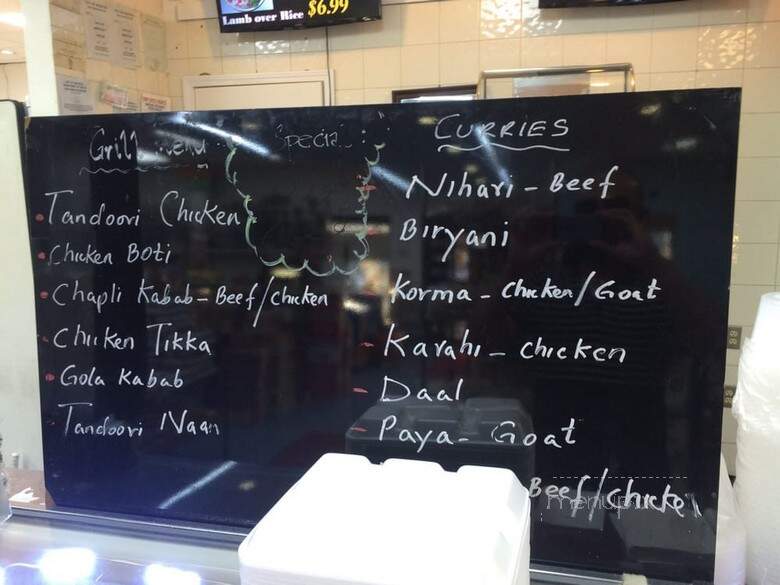 Lamb over Rice $6.99
Grill Menu
Tandoori Chicken
Chicken Boti
Chapli Kabab - Beef/chicken
Chicken Tikka
Gola Kabab
Tandoori Naan
Special
CURRIES
Nihari - Beef
Biryani
Korma - Chicken/Goat
Karahi - chicken
Daal
Paya - Goat
Beef/Chicken
menupix